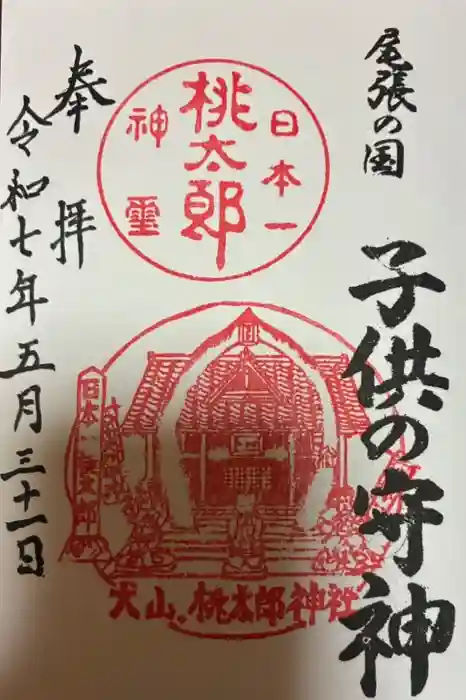 尾張の国
子供の守神
日本一
桃太郎
神霊
奉拝
令和七年五月三十一日
日本一
犬山.桃太郎神社